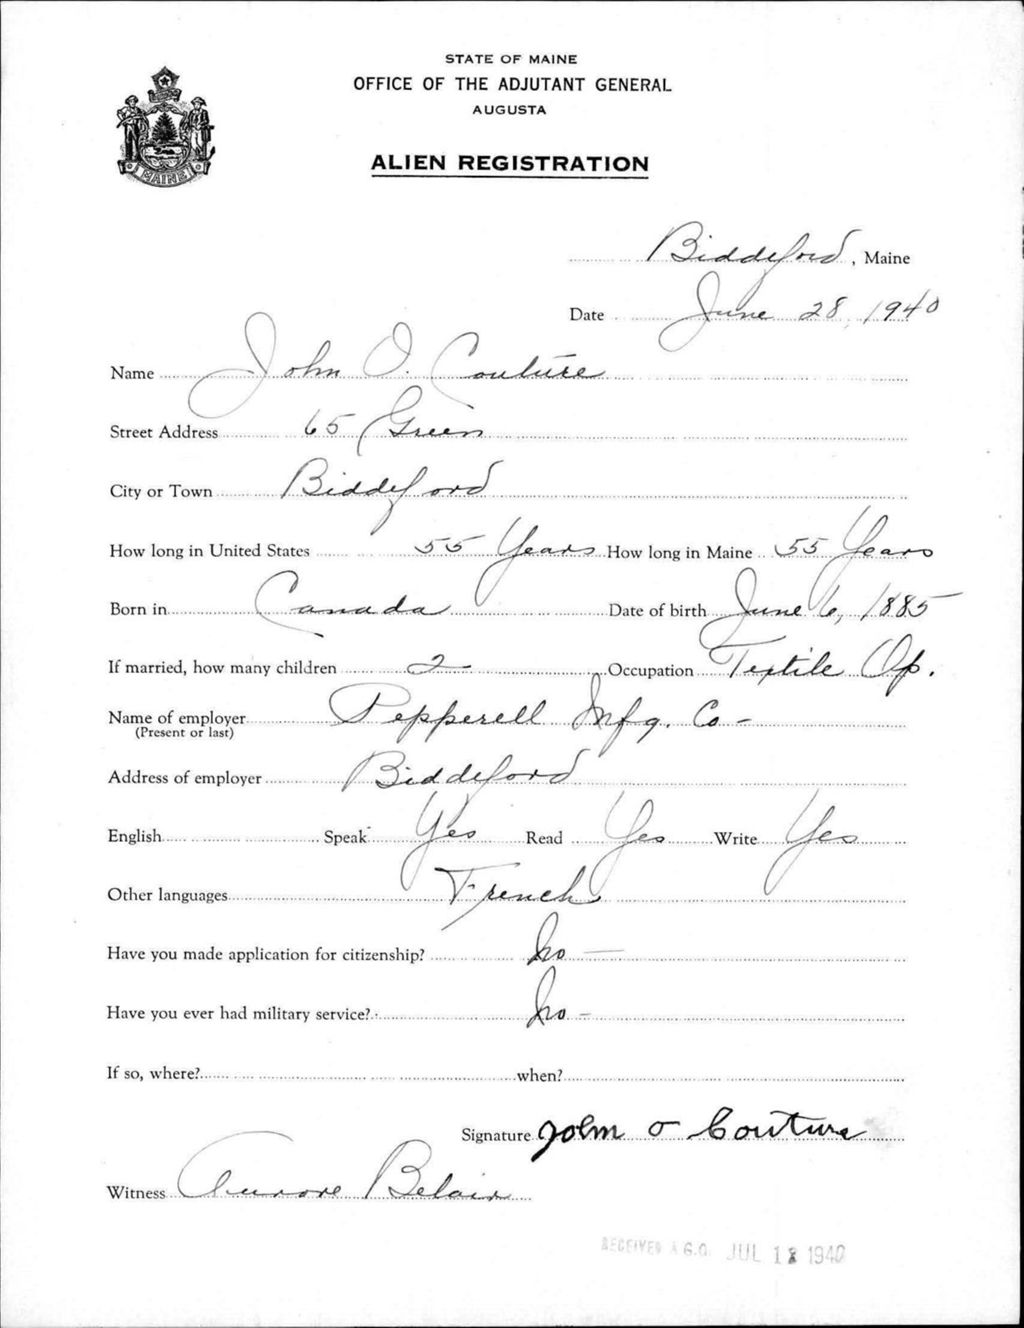 STATE OF MAINE
OFFICE OF THE ADJUTANT GENERAL
AUGUSTA
ALIEN REGISTRATION
MAINE
Biddeford, Maine
Date June 28, 1940
Name John O. Couture
Street Address 65 Green
City or Town Biddeford
How long in United States 55 Years How long in Maine 55 Years
Born in Canada Date of birth June 6, 1885
If married, how many children 2 Occupation Textile Op.
Name of employer Pepperell Mfg. Co -
(Present or last)
Address of employer Biddeford
English Speak Yes Read Yes Write Yes
Other languages French
Have you made application for citizenship? No -
Have you ever had military service? No -
If so, where? when?
Signature John O Couture
Witness Aurore Belair
RECEIVED A.G.O. JUL 1940